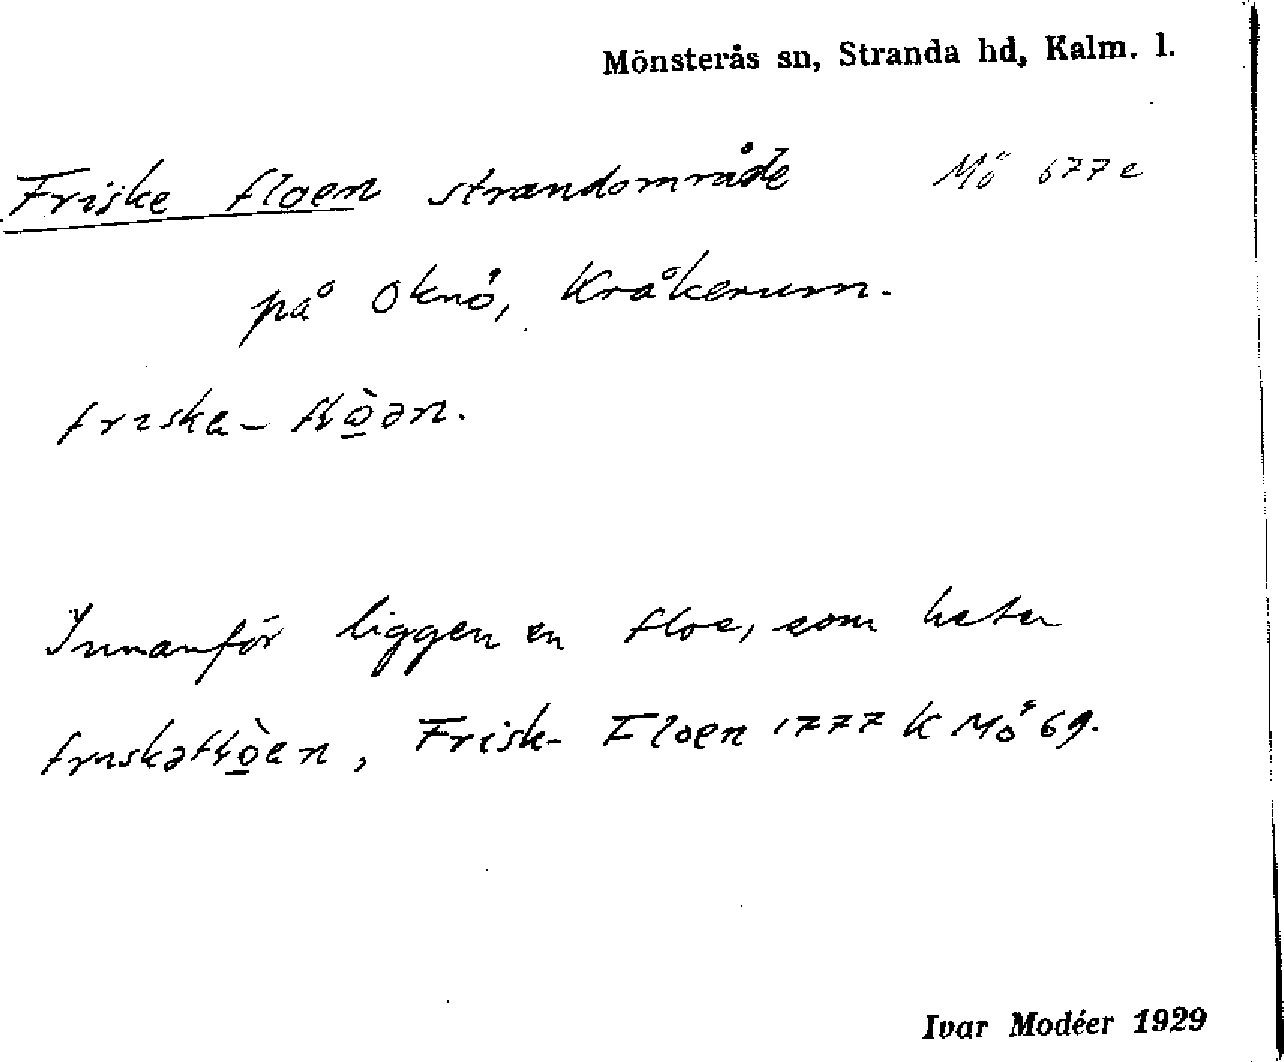 Mönsterås sn, Stranda hd, Kalm. l.
Friske floen strandområde Mö 677 e
på Oknö, Kråkerum.
friska-
Innanför ligger en floe, som heter
Frisk- Floen 1777 K Mö 69.
Ivar Modéer 1929